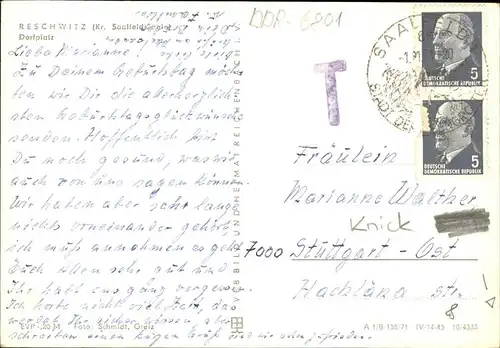 RESCHWITZ (Kr. Saalfeld
Dorfplatz
DDR-6801
T
SAALFELD
5
DEUTSCHE
DEMOKRATISCHE REPUBLIK
5
DEUTSCHE
DEMOKRATISCHE REPUBLIK
Liebe Marianne!
Zu Deinem Geburtstag möch-
ten wir Dir die allerherzlich-
sten Geburtstagsglückwünsche
senden. Hoffentlich bist
Du noch gesund, was wir
auch von uns sagen können.
Wir haben aber sehr lange
nichts voneinander gehört,
ich muß annehmen es geht
Euch allen sehr gut und
Ihr habt uns ganz vergessen.
Ich habe nicht viel Zeit, das
werdet Ihr sicher wissen, aber
schreiben einen kurzen Gruß sind wir zufrieden.
VEB BILD UND HEIMAT REICHENBACH
Fräulein
Marianne Walther
Knick
7000 Stuttgart-Ost
Hackländerstr.
8
EVP -,20 M Foto: Schmidt, Greiz
A 1/B 135/71 IV-14-45 10/4333